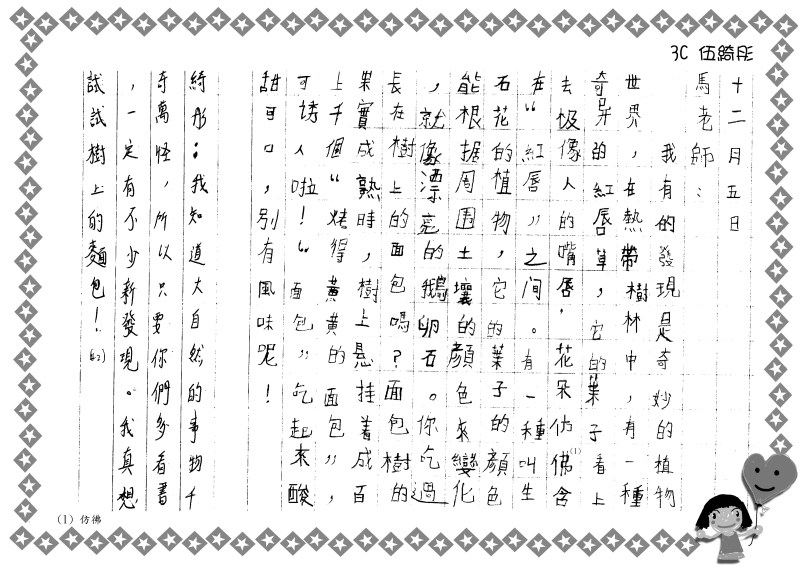 3C 伍綺彤
十二月五日
馬老師：
我有的發現是奇妙的植物
世界，在熱帶樹林中，有一種
奇异的紅唇草，它的葉子看上
去极像人的嘴唇，花朵仿佛含
在“紅唇”之間。有一種叫生
石花的植物，它的葉子的顏色
能根据周围土壤的顏色來變化
，就像漂亮的鵝卵石。你吃過
長在樹上的面包嗎？面包樹的
果實成熟時，樹上悬挂着成百
上千個“烤得黃黃的面包”，
可誘人啦！“面包”吃起來酸
甜可口，别有風味呢！
綺彤：我知道大自然的事物千
奇萬怪，所以只要你們多看書
，一定有不少新發現。我真想
試試樹上的麵包！
(1)
(1) 仿彿